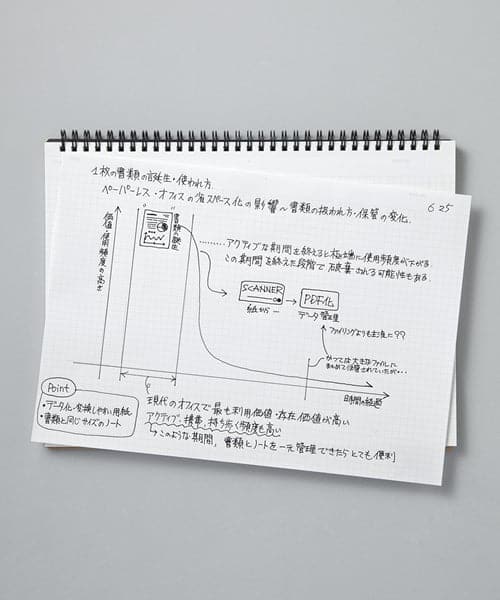 1枚の書類の誕生・使われ方.
ペーパーレス・オフィスの省スペース化の影響〜書類の扱われ方・保管の変化.
6.25
価値・使用頻度の高さ
書類の誕生
………アクティブな期間を終えると極端に使用頻度が下がる.
この期間を終えた段階で破棄される可能性もある.
SCANNER
紙から…
PDF化
データ管理
ファイリングよりも主流に??
かつては大きなファイルに
まとめて保管されていたが…
時間の経過
Point
・データ化・変換しやすい用紙
・書類と同じサイズのノート
現代のオフィスで最も利用価値・存在価値が高い
アクティブ・携帯,持ち歩く頻度も高い
↳このような期間,書類とノートを一元管理できたらとても便利